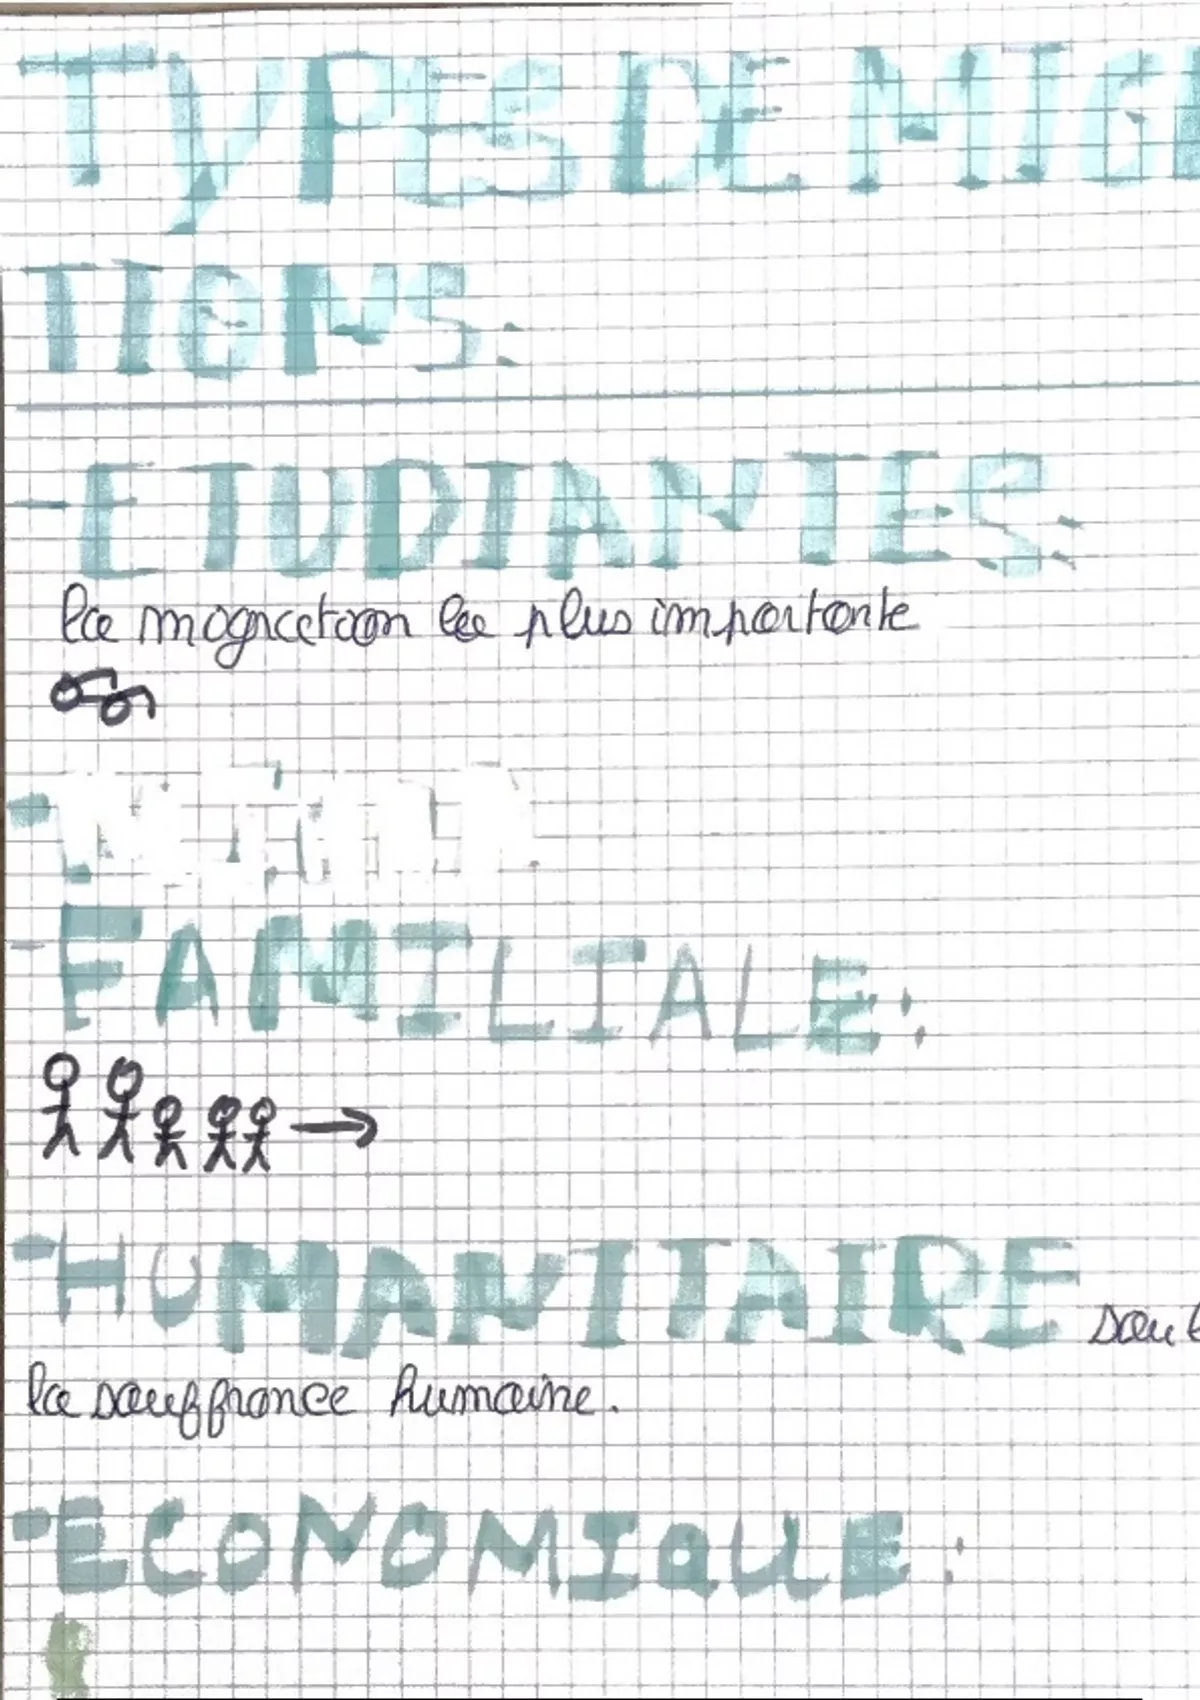 TYPES DE MIGR
TIONS:
- ETUDIANTES:
la mogration la plus importante
- FAMILIALE:
- HUMANITAIRE
la souffrance humaine.
- ECONOMIQUE: